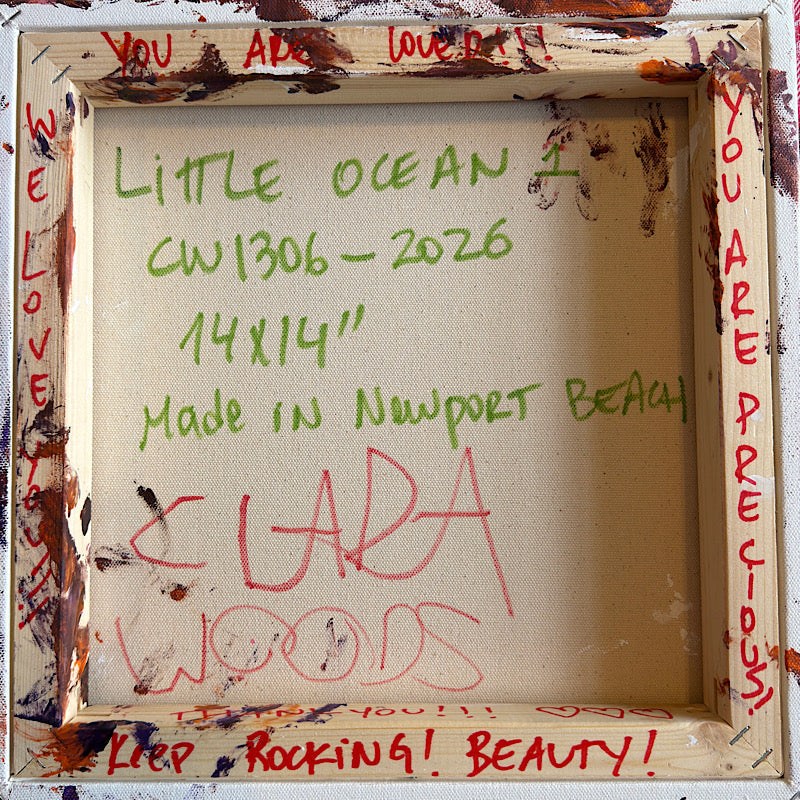 YOU ARE LOVED!!!
WE LOVE YOU!!!
YOU ARE PRECIOUS!
LiTTLE OCEAN 1
CW1306-2026
14X14"
Made iN NewpoRT BEACH
CLARA
WOODS
THANK YOU!!! ♡♡♡
Keep ROCKiNG! BEAUTY!